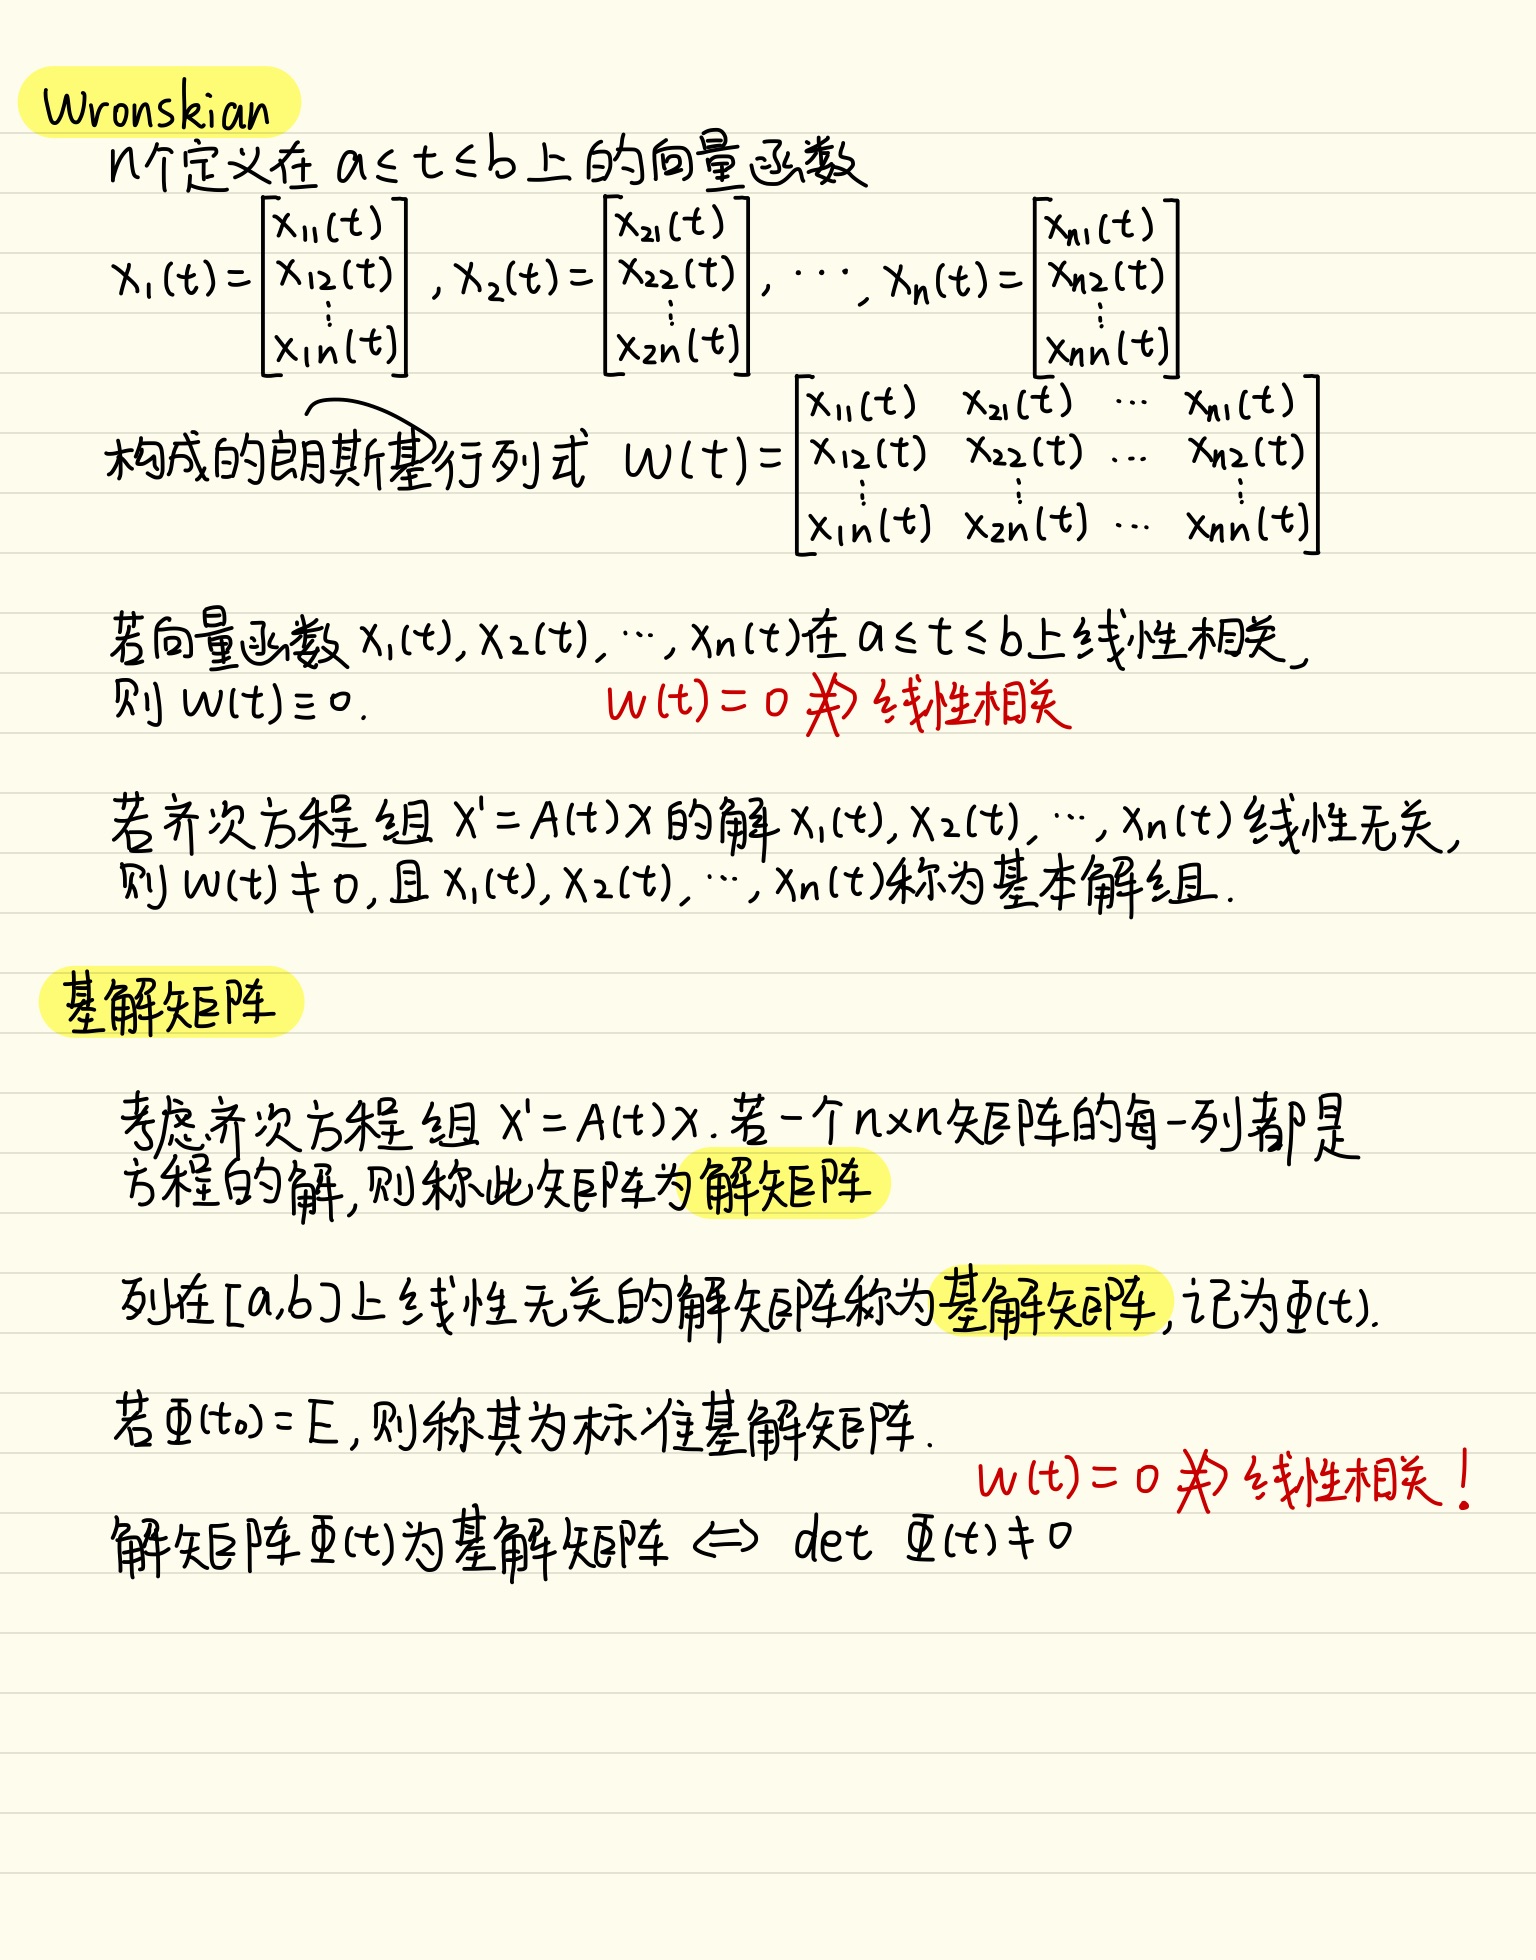 Wronskian
n个定义在 a≤t≤b上的向量函数
x₁(t)=[x₁₁(t) x₁₂(t) ⋮ x₁n(t)], x₂(t)=[x₂₁(t) x₂₂(t) ⋮ x₂n(t)], ⋯, xn(t)=[xn₁(t) xn₂(t) ⋮ xnn(t)]
构成的朗斯基行列式 W(t)=[x₁₁(t) x₂₁(t) ⋯ xn₁(t)
x₁₂(t) x₂₂(t) ⋯ xn₂(t)
⋮ ⋮ ⋮
x₁n(t) x₂n(t) ⋯ xnn(t)]
若向量函数 x₁(t), x₂(t), ⋯, xn(t)在 a≤t≤b上线性相关,
则 W(t)≡0. W(t)=0 ⇏ 线性相关
若齐次方程组 x'=A(t)x 的解 x₁(t), x₂(t), ⋯, xn(t)线性无关,
则 W(t)≠0, 且 x₁(t), x₂(t), ⋯, xn(t)称为基本解组.
基解矩阵
考虑齐次方程组 x'=A(t)x. 若一个n×n矩阵的每一列都是
方程的解, 则称此矩阵为解矩阵
列在[a,b]上线性无关的解矩阵称为基解矩阵, 记为Φ(t).
若Φ(t₀)=E, 则称其为标准基解矩阵.
W(t)=0 ⇏ 线性相关!
解矩阵Φ(t)为基解矩阵 ⇔ det Φ(t)≠0